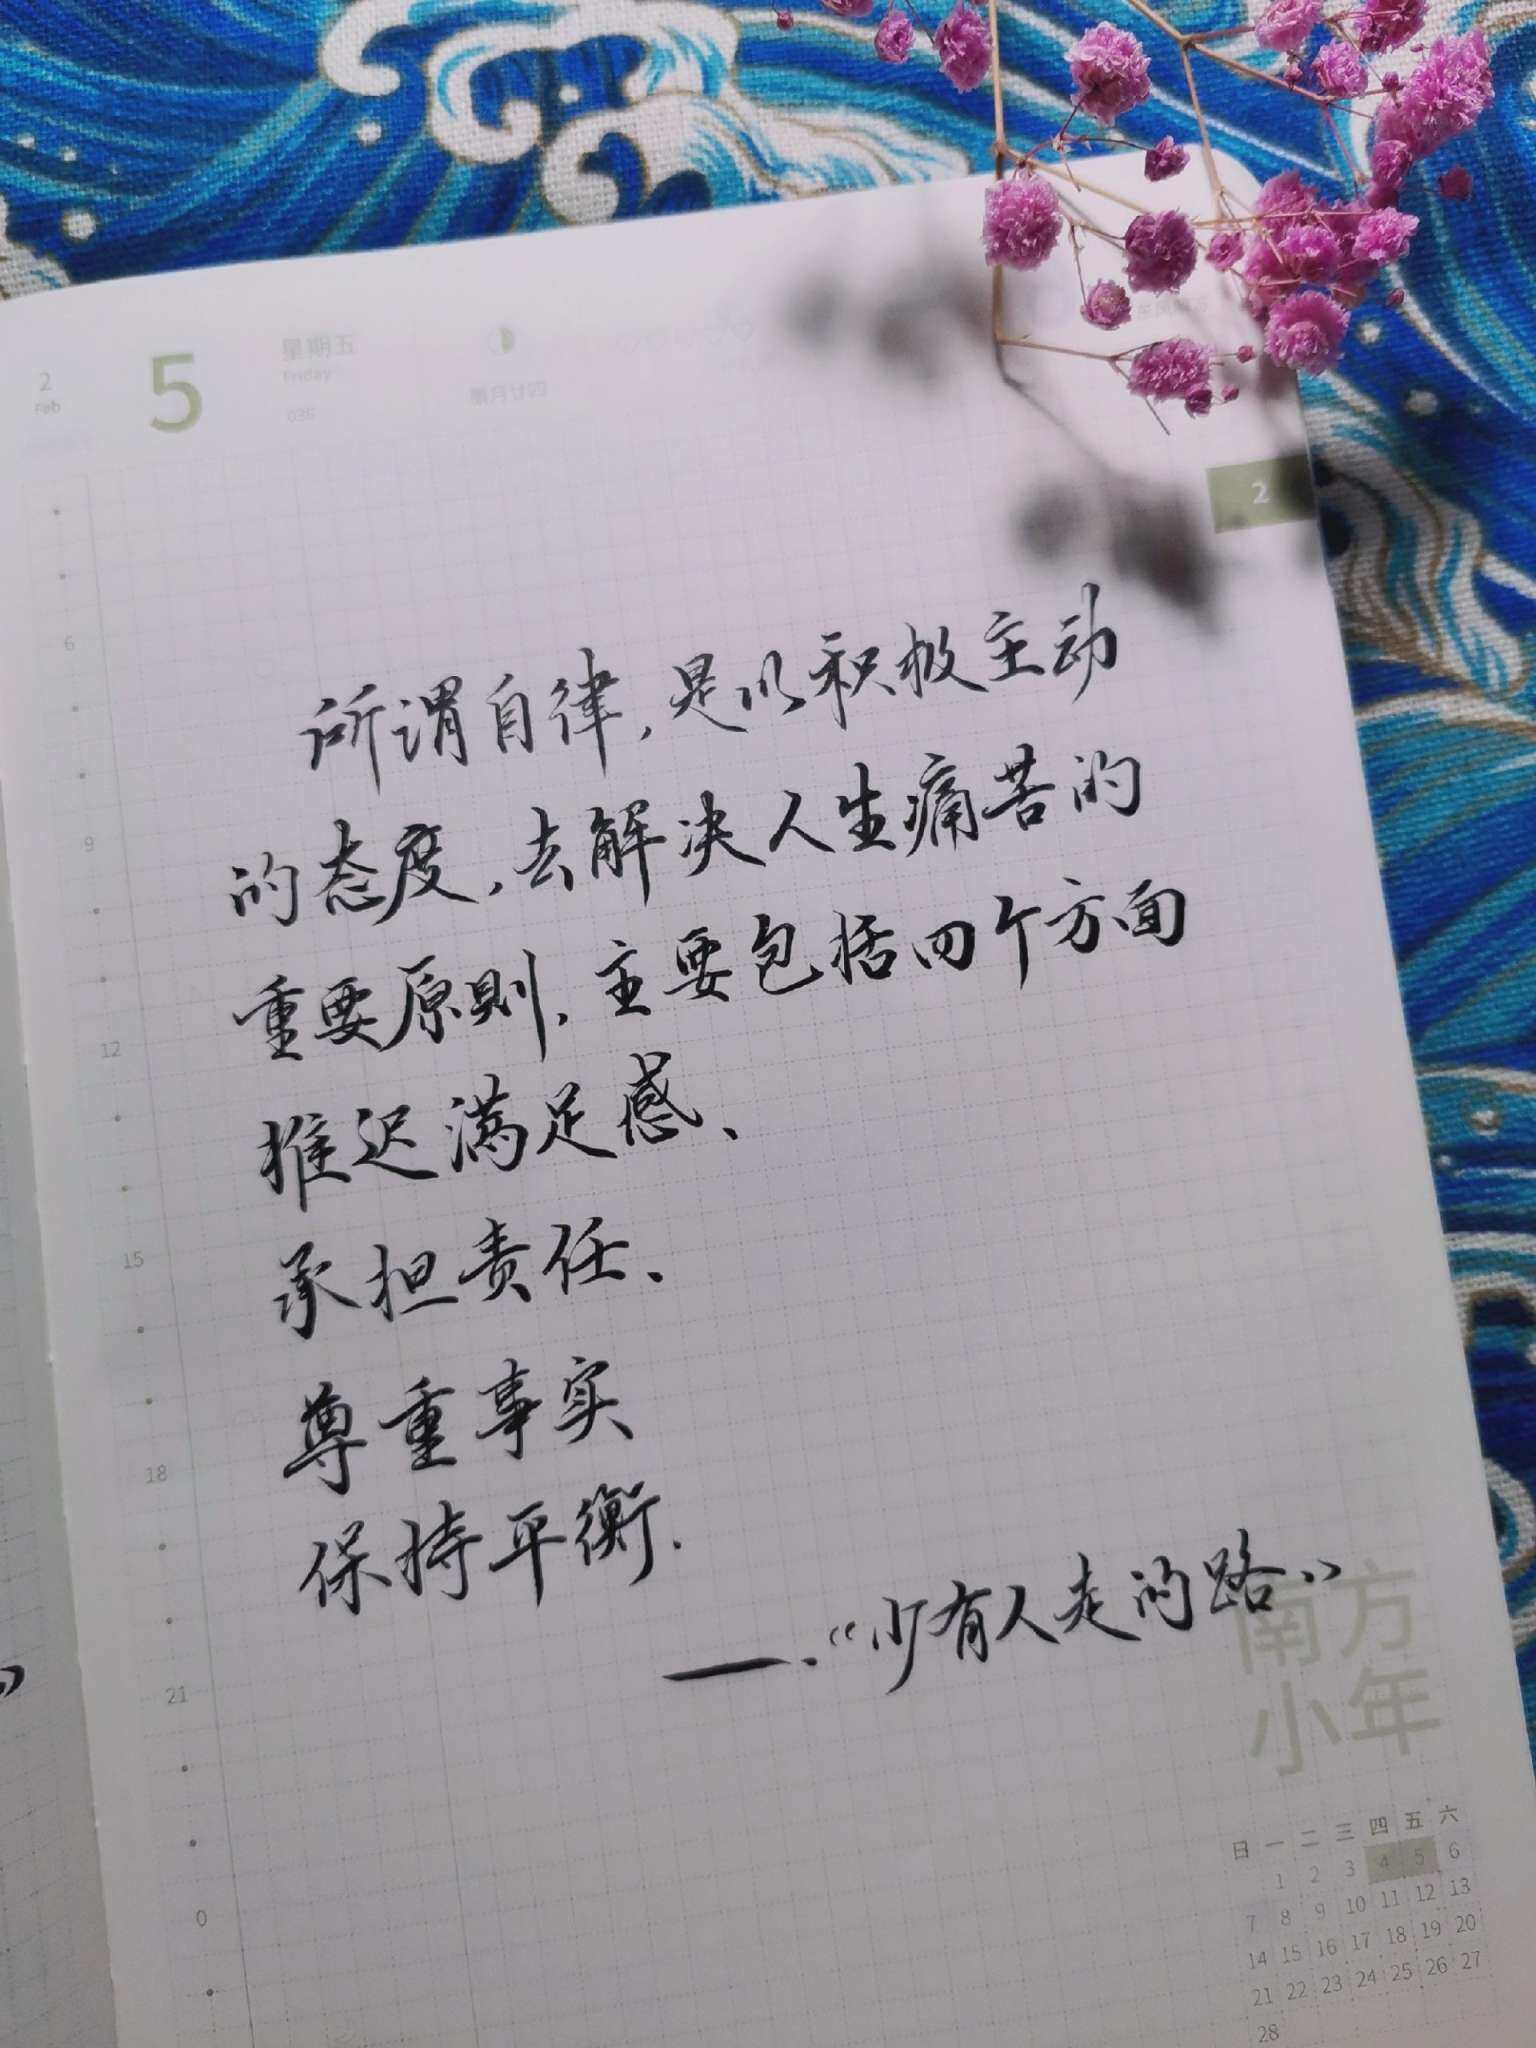 2
Feb
5
星期五
Friday
035
腊月廿四
2
6
所谓自律,是以积极主动
9
的态度,去解决人生痛苦的
重要原则,主要包括四个方面
12
推迟满足感、
15
承担责任、
尊重事实
18
保持平衡.
——.“少有人走的路”
21
南方
小年
0
日 一 二 三 四 五 六
1 2 3 4 5 6
7 8 9 10 11 12 13
14 15 16 17 18 19 20
21 22 23 24 25 26 27
28